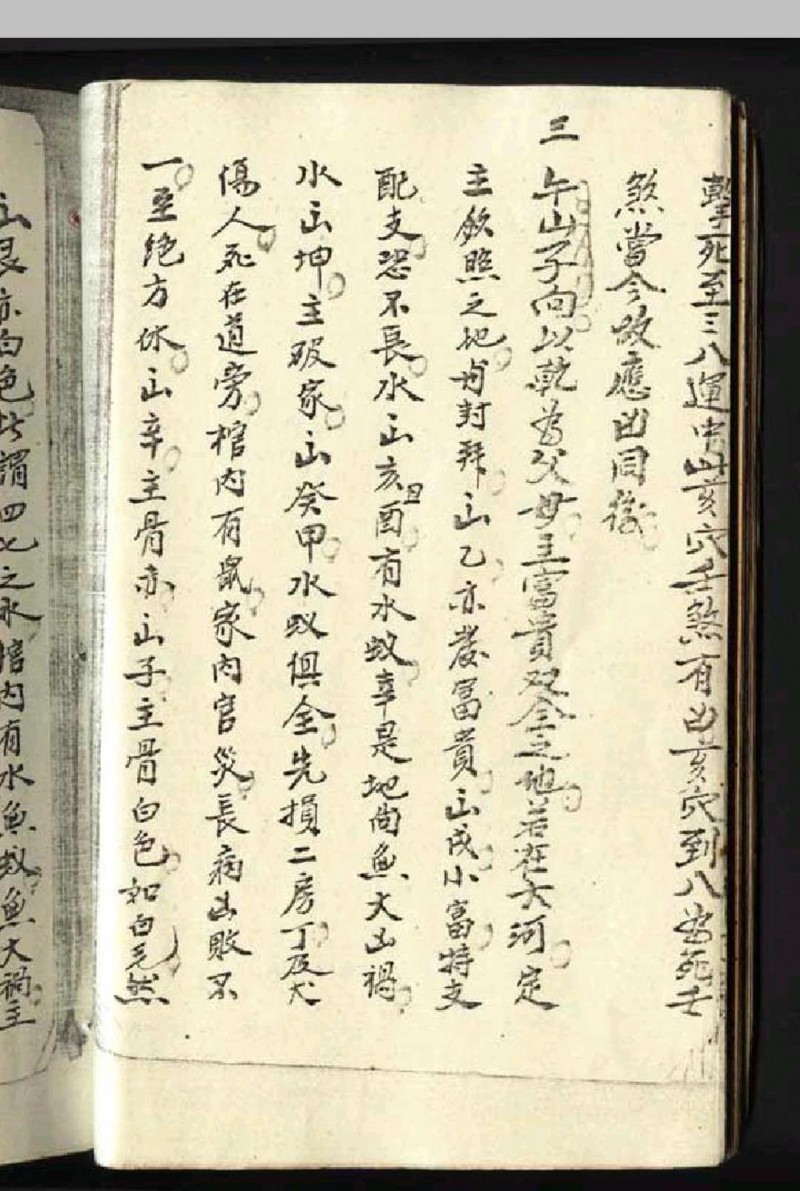 擊死至三八運中山亥穴壬煞有凶亥穴到八為死壬
煞當令故應凶同後
三 午山子向以乾為父母主富貴双全之地若在大河定
主欽照之地封拜山乙亦發富貴山戌小富特支
配支恐不長水山亥丑酉有水蚁幸是地尚魚大凶禍
水山坤主破家山癸甲水蚁俱全先損二房丁及犬
傷人死在道旁棺內有鼠家內官災長病出敗不
一至絕方休山辛主骨赤山子主骨白色如白毛然
山艮亦白色此謂四七之水棺内有水魚蚁魚大禍主